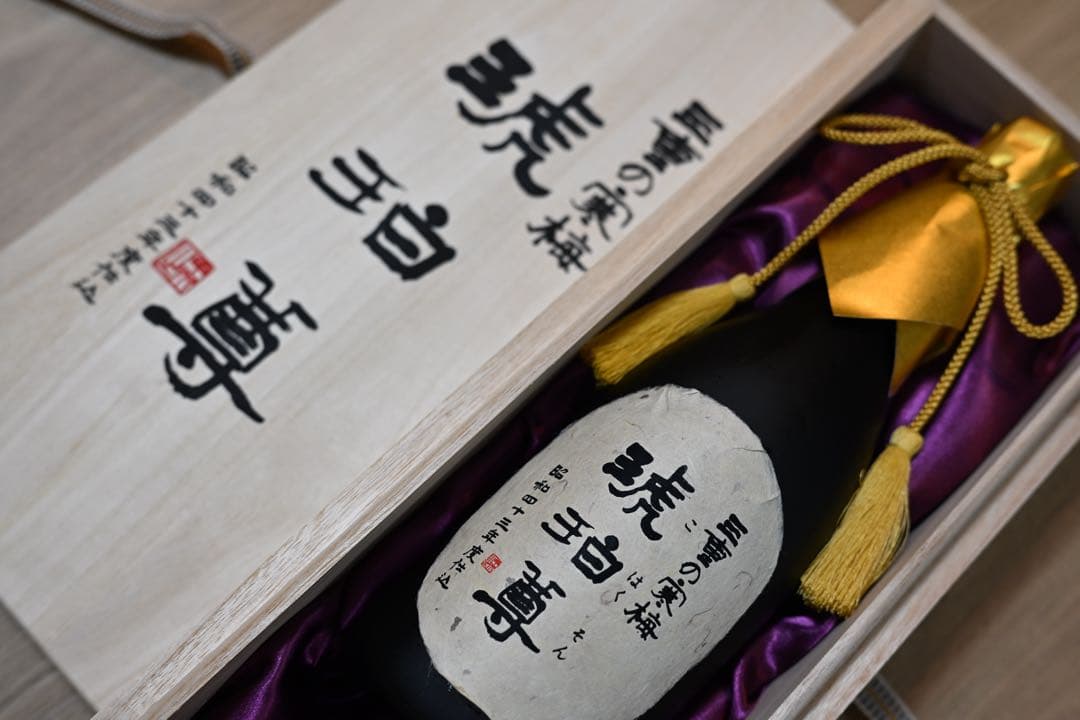 三重の寒梅
琥珀
尊
昭和四十三年度仕込
三重の寒梅
琥珀
尊
こ
はく
そん
昭和四十三年度仕込